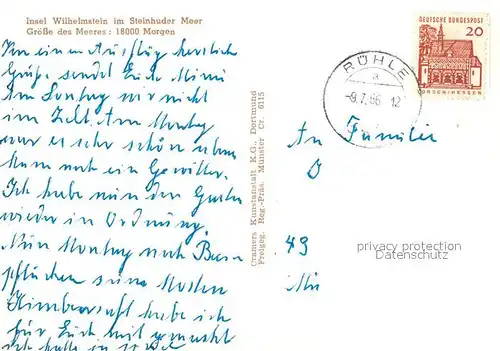 Insel Wilhelmstein im Steinhuder Meer
Größe des Meeres : 18000 Morgen
Von einem Ausflug herzliche
Grüße sendet Euch Mimi
Am Sonntag wir nicht
im Zelt. Am Montag
war es sehr schön aben
kam noch ein Gewitter.
Ich habe nun den Garten
wieder in Ordnung.
Nun Montag noch
pflücken zum Mosten
Himbeersaft habe ich
für Euch mit gemacht
Ich habe in
Cramers Kunstanstalt K.G., Dortmund
Freigeg. Reg.-Präs. Münster Cr. 6115
DEUTSCHE BUNDESPOST
20
LORSCH/HESSEN
RÜHLE
a
-9.7.66 12
An Familie
D
49
privacy protection
Datenschutz